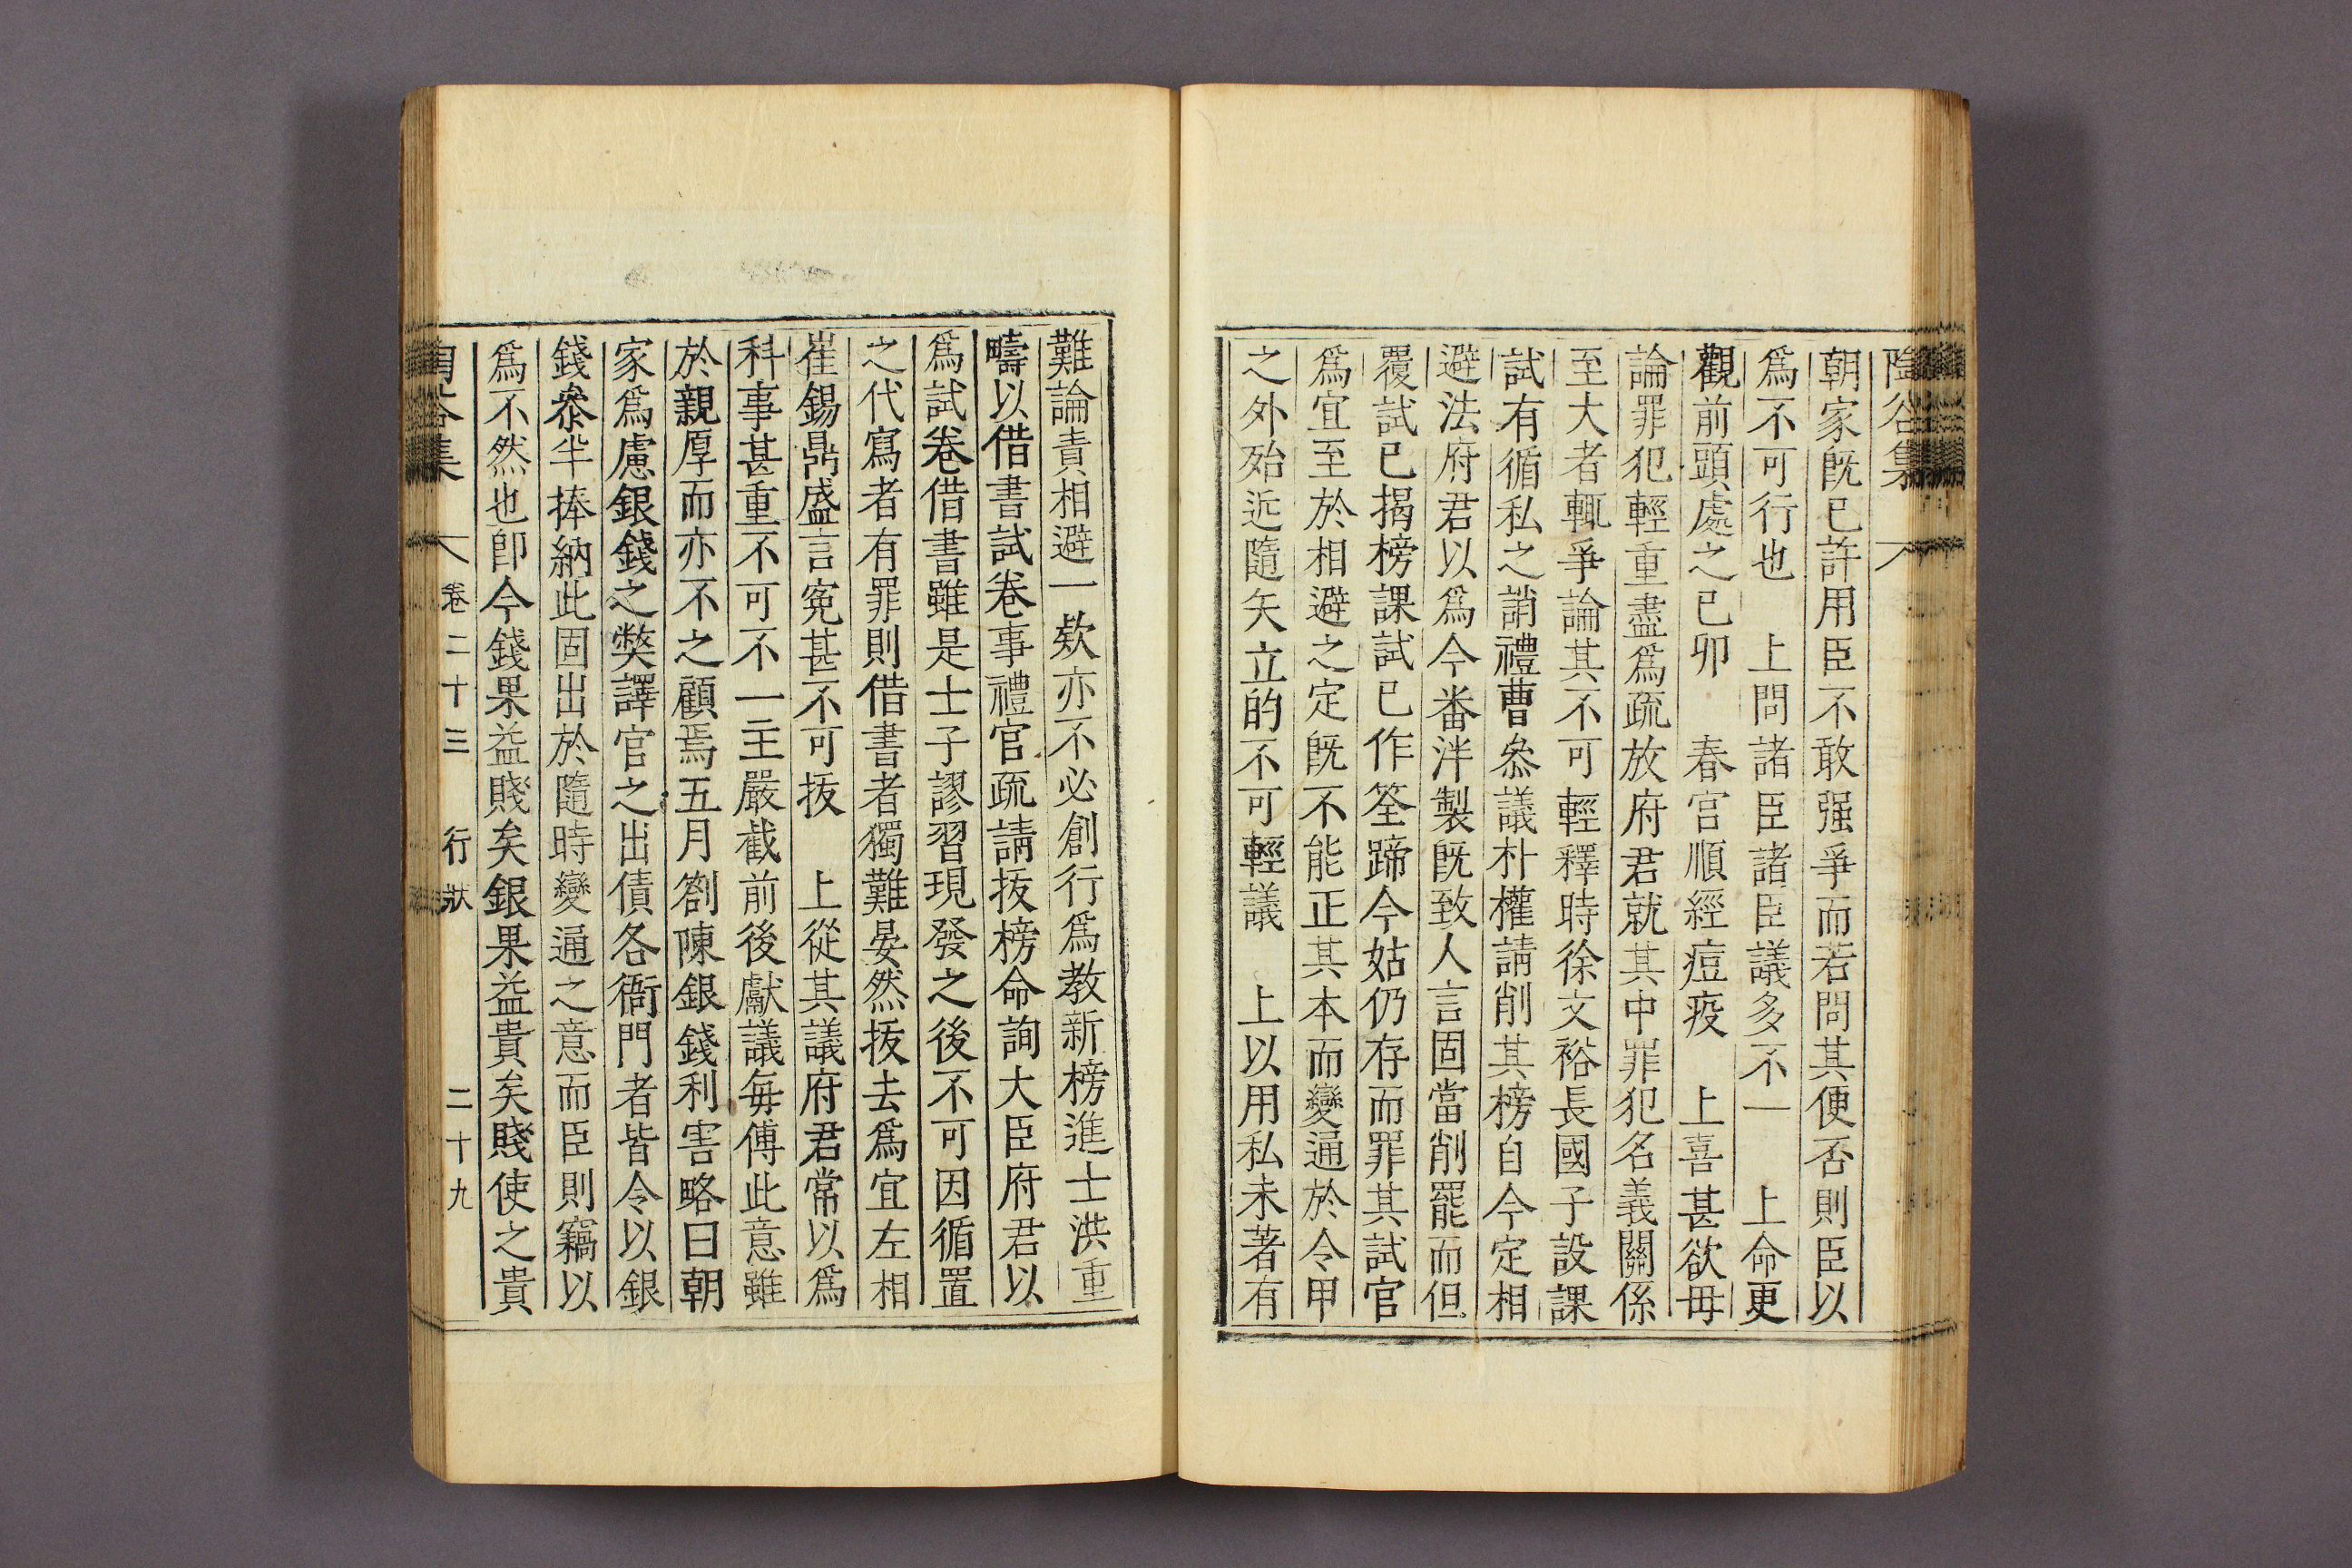 陶谷集
朝家旣已許用臣不敢强爭而若問其便否則臣以
爲不可行也　上問諸臣諸臣議多不一　上命更
觀前頭處之已卯　春宮順經痘疫　上喜甚欲毋
論罪犯輕重盡爲疏放府君就其中罪犯名義關係
至大者輒爭論其不可輕釋時徐文裕長國子設課
試有循私之誚禮曹叅議朴權請削其榜自今定相
避法府君以爲今番泮製旣致人言固當削罷而但
覆試已揭榜課試已作筌蹄今姑仍存而罪其試官
爲宜至於相避之定旣不能正其本而變通於令甲
之外殆近隨矢立的不可輕議　上以用私未著有
難論責相避一欵亦不必創行爲教新榜進士洪重
疇以借書試卷事禮官疏請拔榜命詢大臣府君以
爲試卷借書雖是士子謬習現發之後不可因循置
之代寫者有罪則借書者獨難晏然拔去爲宜左相
崔錫鼎盛言寃甚不可拔　上從其議府君常以爲
科事甚重不可不一主嚴截前後獻議每傅此意雖
於親厚而亦不之顧焉五月劄陳銀錢利害略曰朝
家爲慮銀錢之弊譯官之出債各衙門者皆令以銀
錢叅半捧納此固出於隨時變通之意而臣則竊以
爲不然也卽今錢果益賤矣銀果益貴矣賤使之貴
陶谷集　卷二十三　行狀　二十九